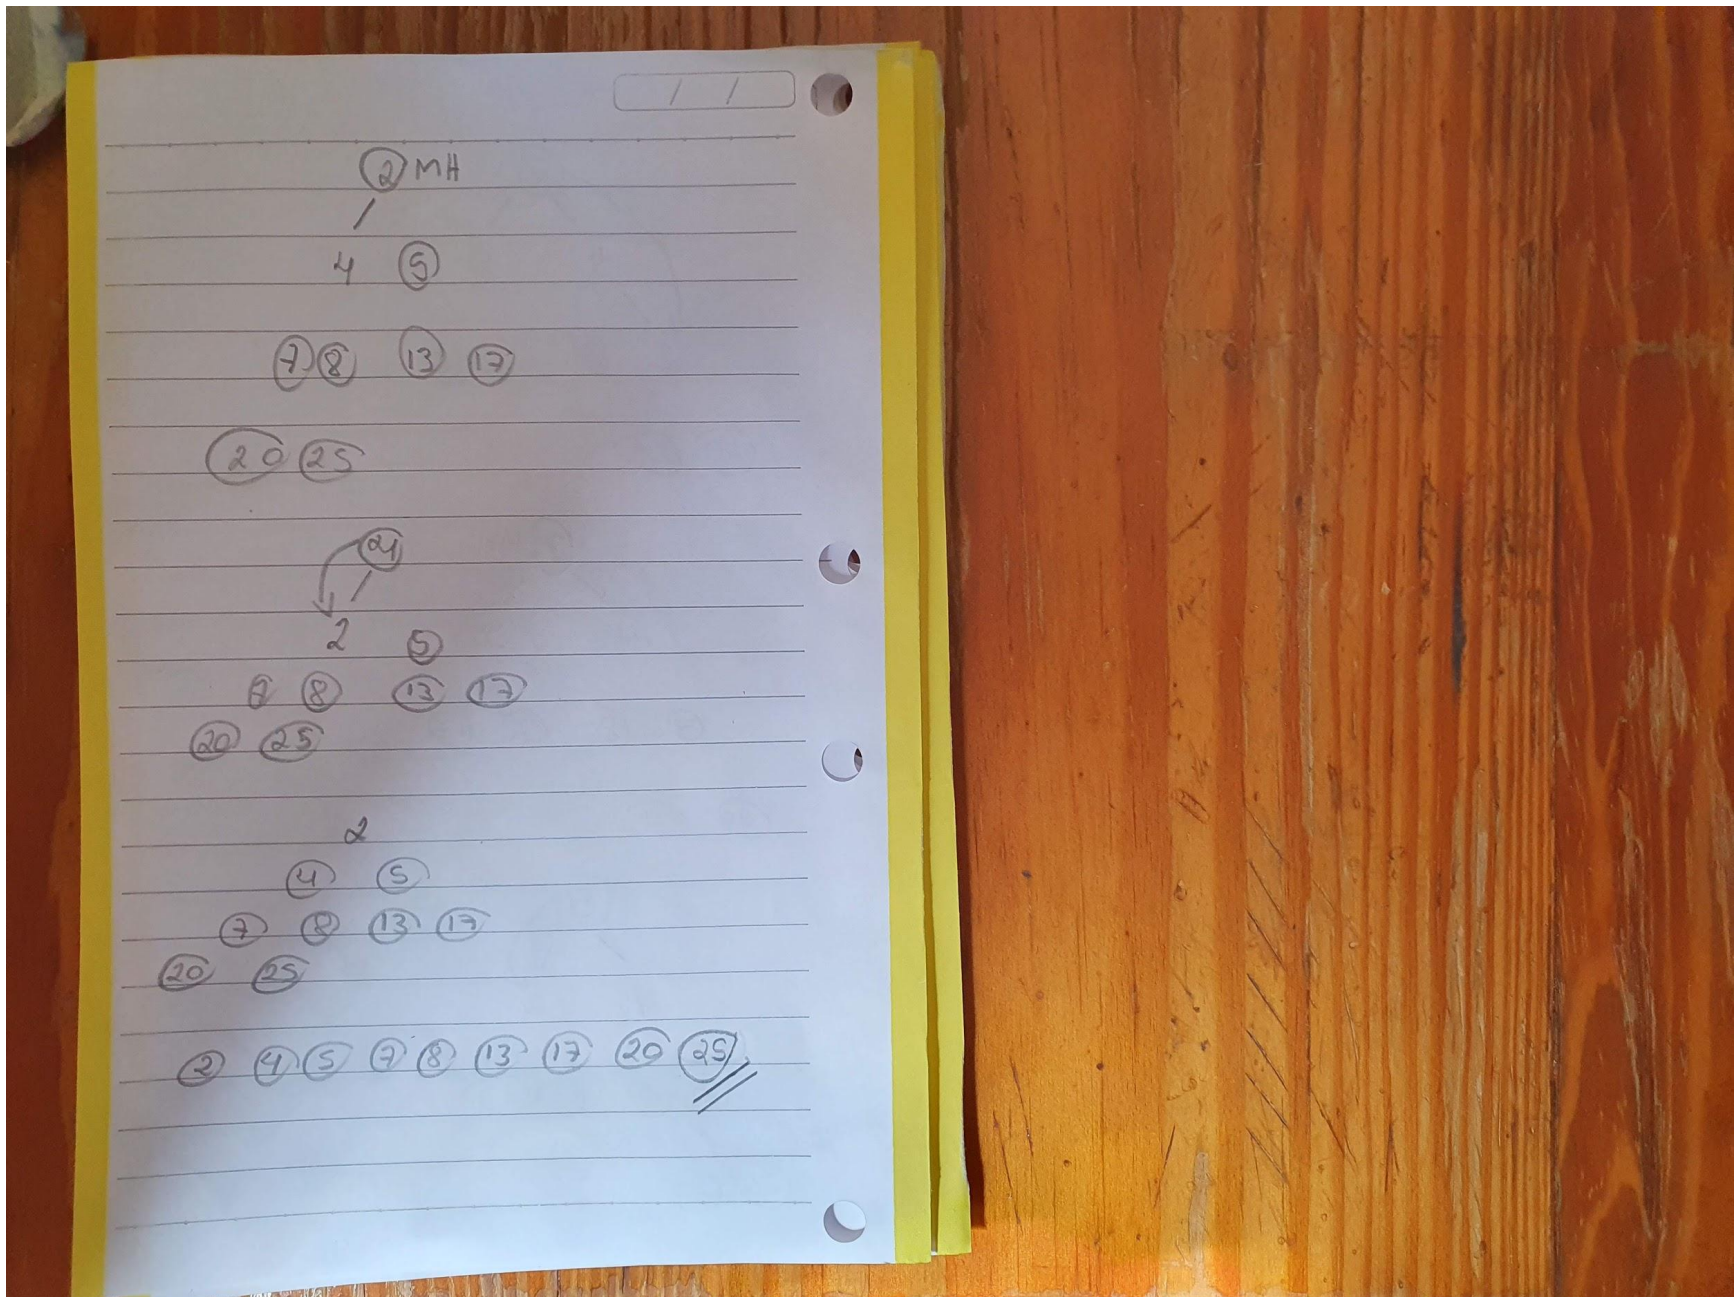 / /
2 MH
4 5
7 8 13 17
20 25
4
2 5
7 8 13 17
20 25
2
4 5
7 8 13 17
20 25
2 4 5 7 8 13 17 20 25